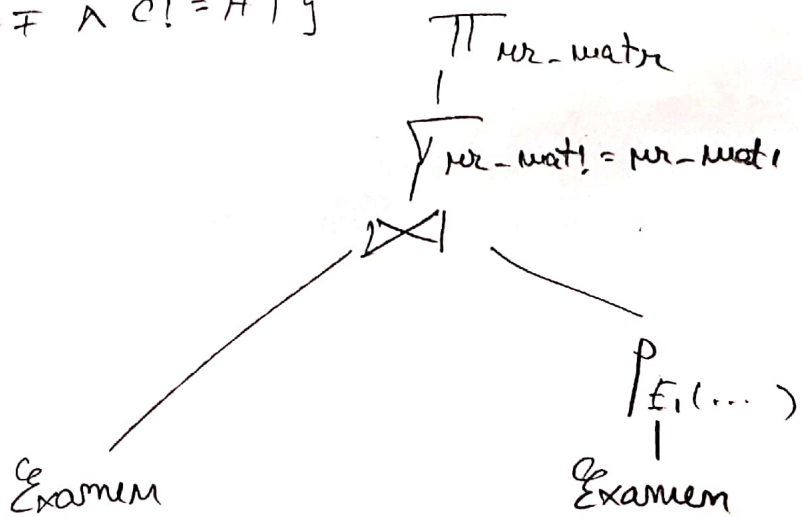 F ∧ C! = A1}
π nr_matr
σ nr_mat! = nr_mat1
⋈
ρ E1(...)
Examen Examen